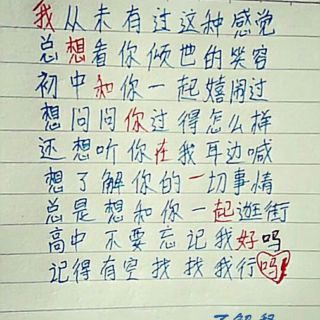 我从未有过这种感觉
总想看你倾世的笑容
初中和你一起嬉闹过
想问问你过得怎么样
还想听你在我耳边喊
想了解你的一切事情
总是想和你一起逛街
高中不要忘记我好吗
记得有空找找我行吗